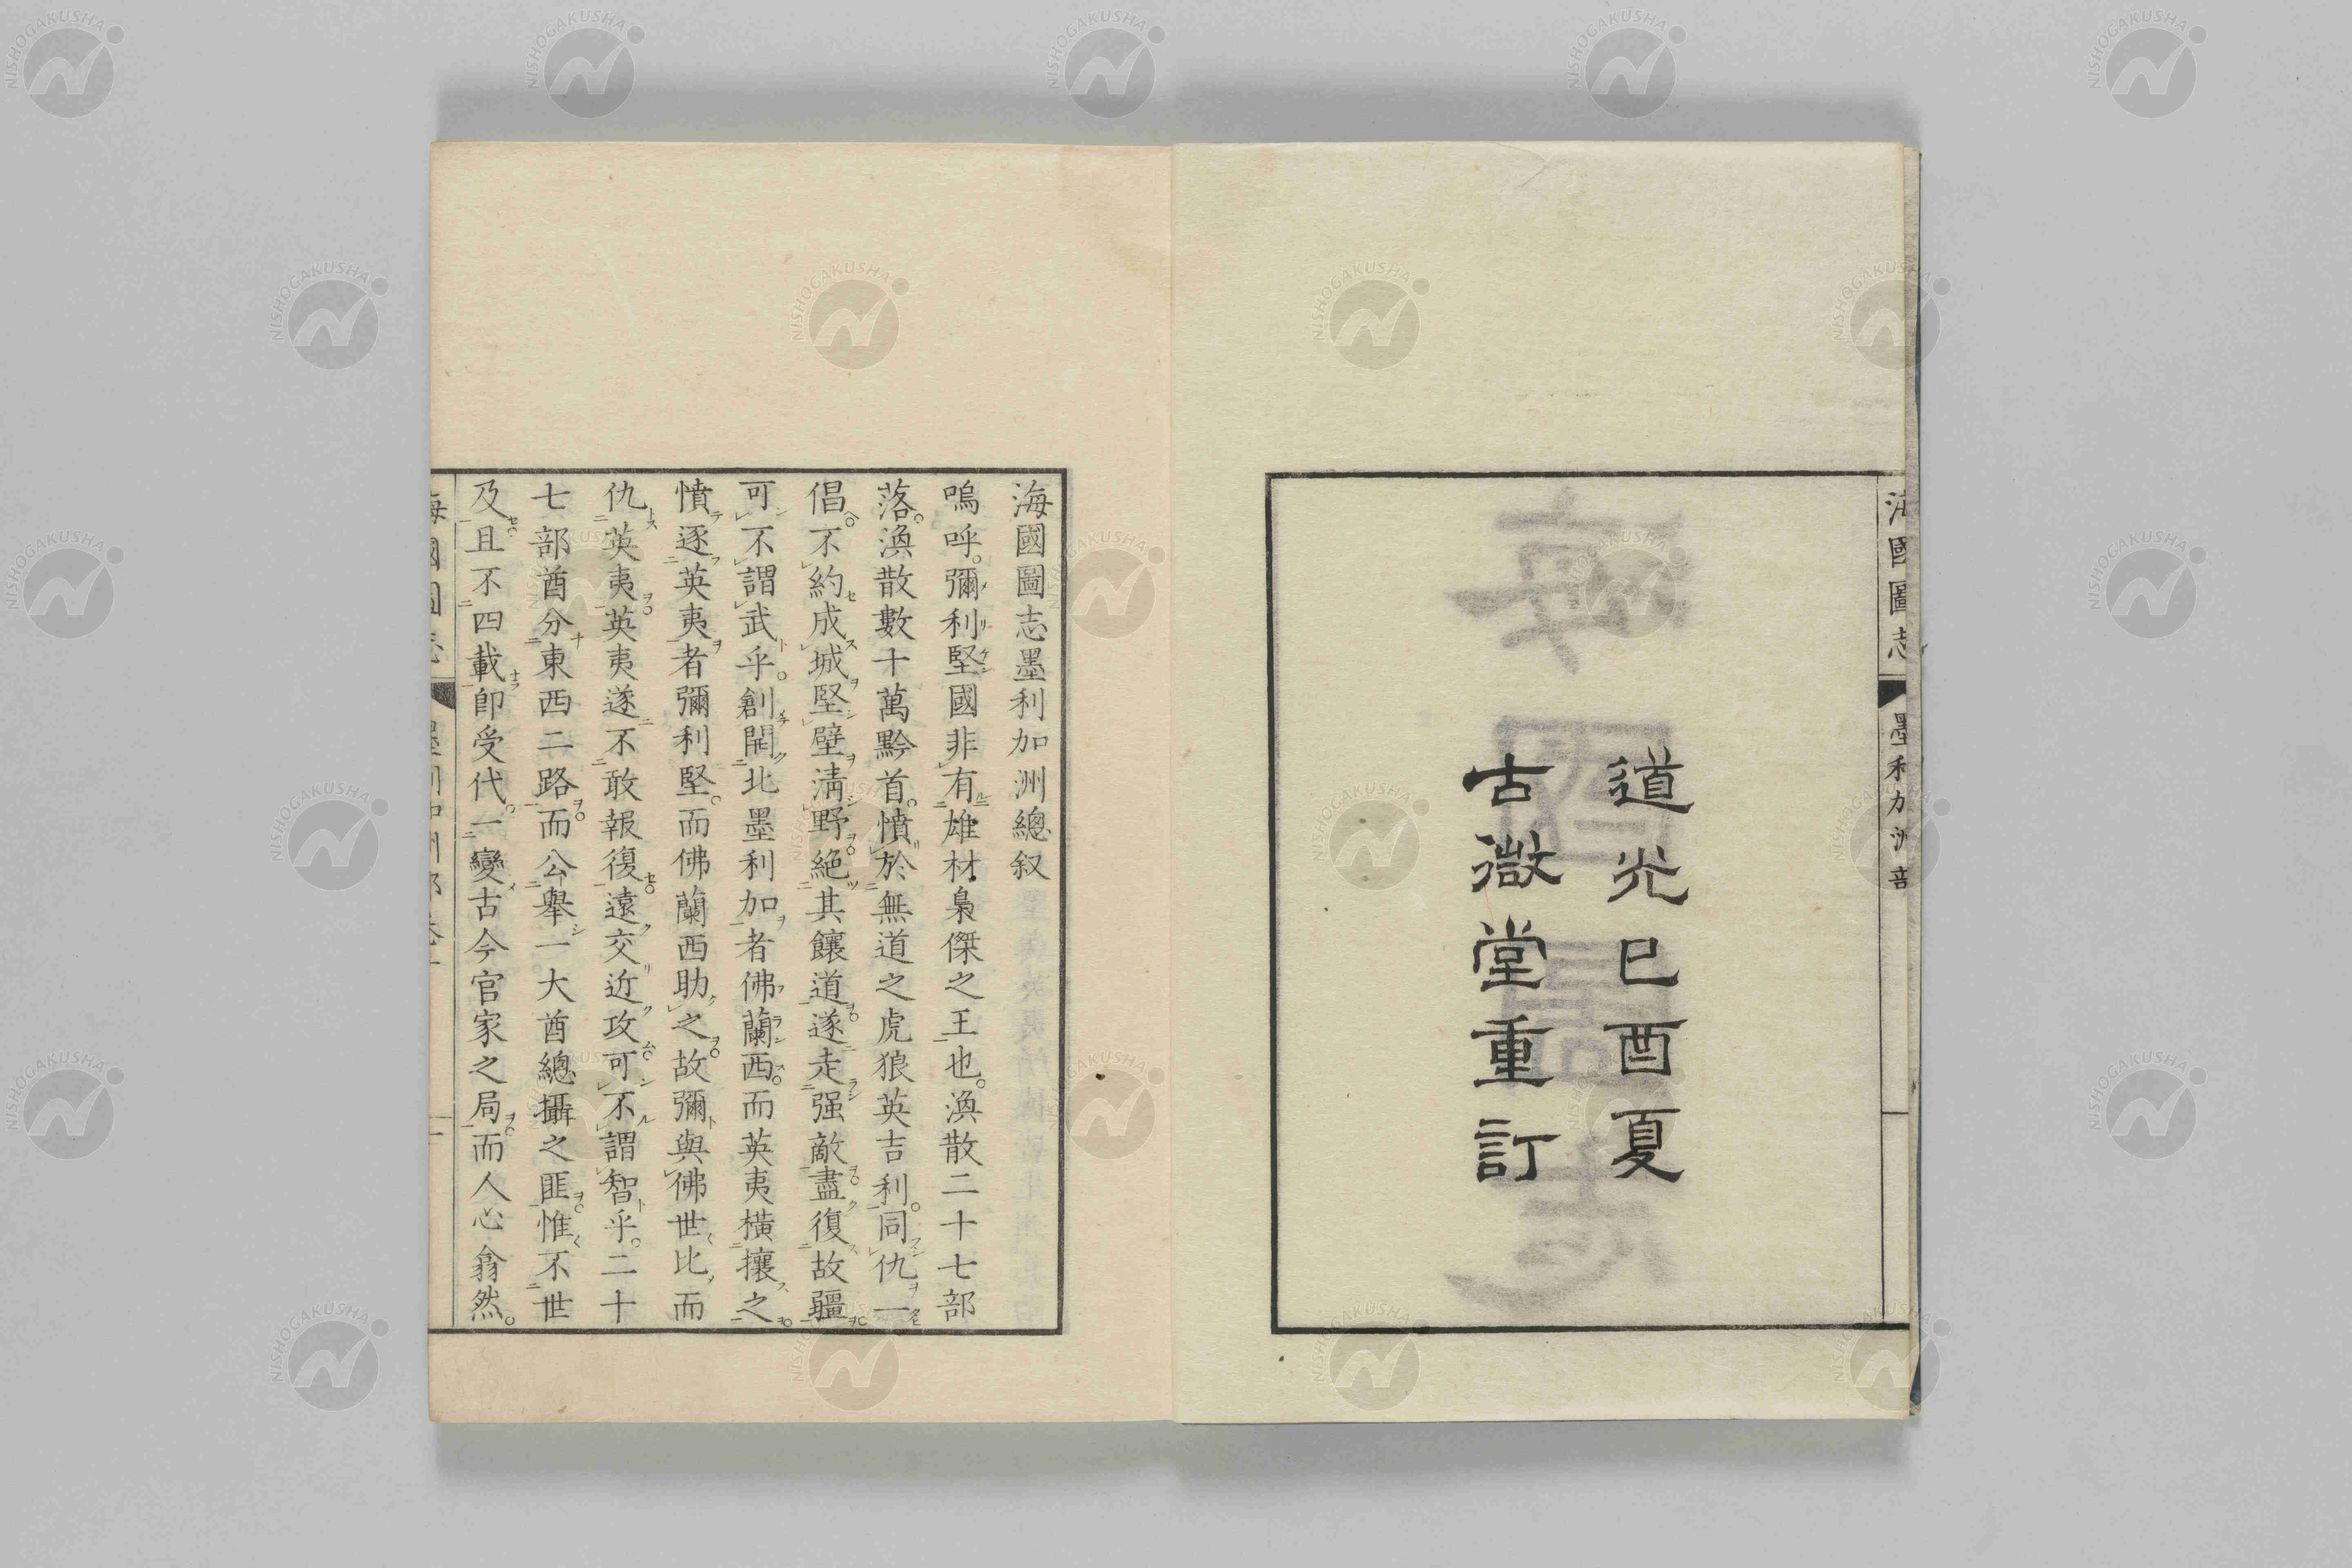 海國圖志
墨利加洲部
道光己酉夏
古微堂重訂
海國圖志墨利加洲總叙
嗚呼。彌利堅國非有雄材梟傑之王也。渙散二十七部
落。渙散數十萬黔首。憤於無道之虎狼英吉利。同仇一
倡。不約成城堅壁清野。絶其饟道。遂走强敵。盡復故疆。
可不謂武乎。創開北墨利加者佛蘭西。而英夷橫攘之。
憤逐英夷者彌利堅。而佛蘭西助之。故彌與佛世比而
仇英夷。英夷遂不敢報復。遠交近攻。可不謂智乎。二十
七部酋分東西二路。而公舉一大酋總攝之。匪惟不世
及。且不四載卽受代。一變古今官家之局。而人心翕然。
NISHOGAKUSHA